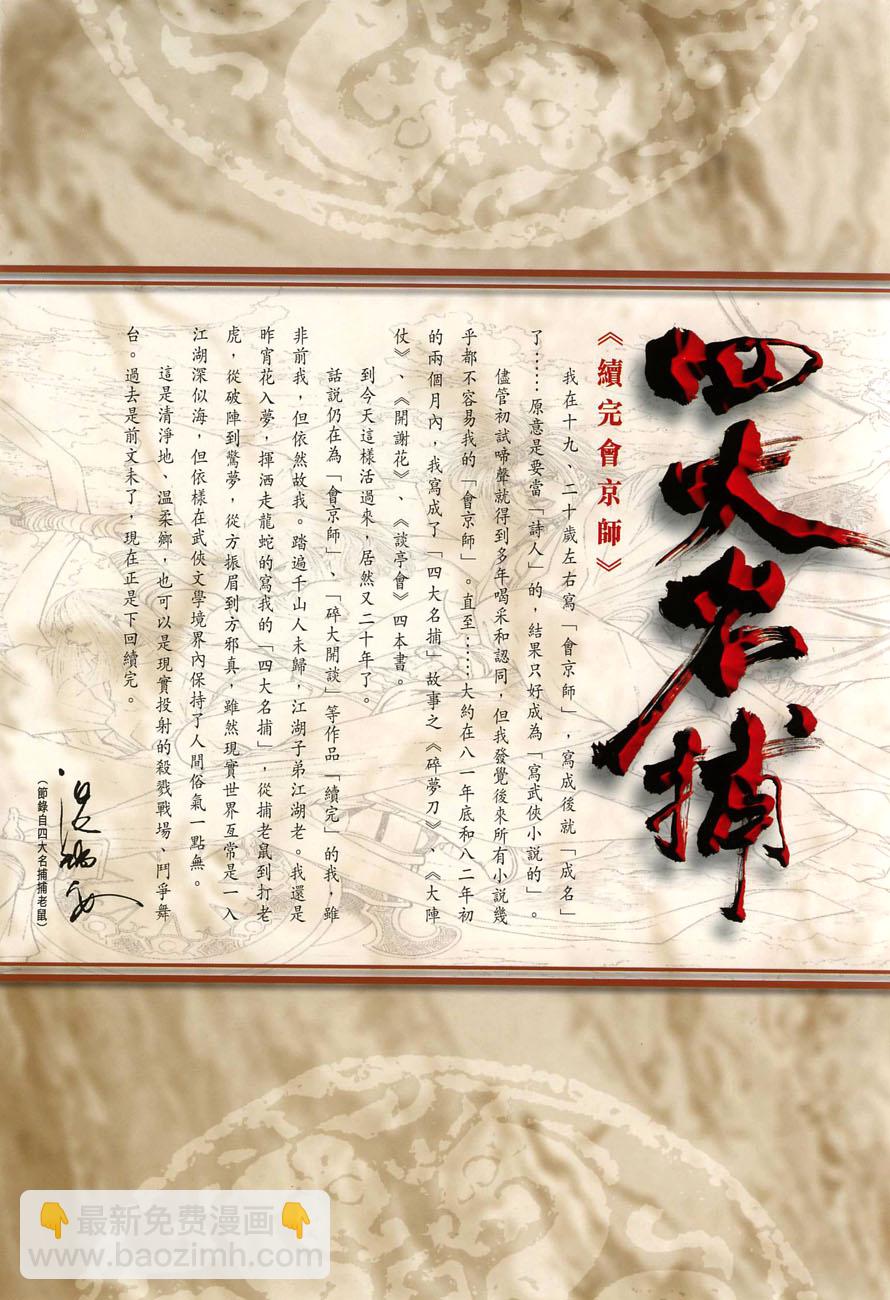 四大名捕
《續完會京師》
我在十九、二十歲左右寫「會京師」，寫成後就「成名」
了……原意是要當「詩人」的，結果只好成為「寫武俠小説的」。
儘管初試啼聲就得到多年喝采和認同，但我發覺後來所有小説幾
乎都不容易我的「會京師」。直至……大約在八一年底和八二年初
的兩個月內，我寫成了「四大名捕」故事之《碎夢刀》、《大陣
仗》、《開謝花》、《談亭會》四本書。
到今天這樣活過來，居然又二十年了。
話説仍在為「會京師」、「碎大開談」等作品「續完」的我，雖
非前我，但依然故我。踏遍千山人未歸，江湖子弟江湖老。我還是
昨宵花入夢，揮洒走龍蛇的寫我的「四大名捕」，從捕老鼠到打老
虎，從破陣到驚夢，從方振眉到方邪真，雖然現實世界互常是一入
江湖深似海，但依樣在武俠文學境界內保持了人間俗氣一點無。
這是清淨地、温柔鄉，也可以是現實投射的殺戮戰場、鬥爭舞
台。過去是前文未了，現在正是下回續完。
温瑞安
（節錄自四大名捕捕老鼠）
👇最新免费漫画👇
www.baozimh.com